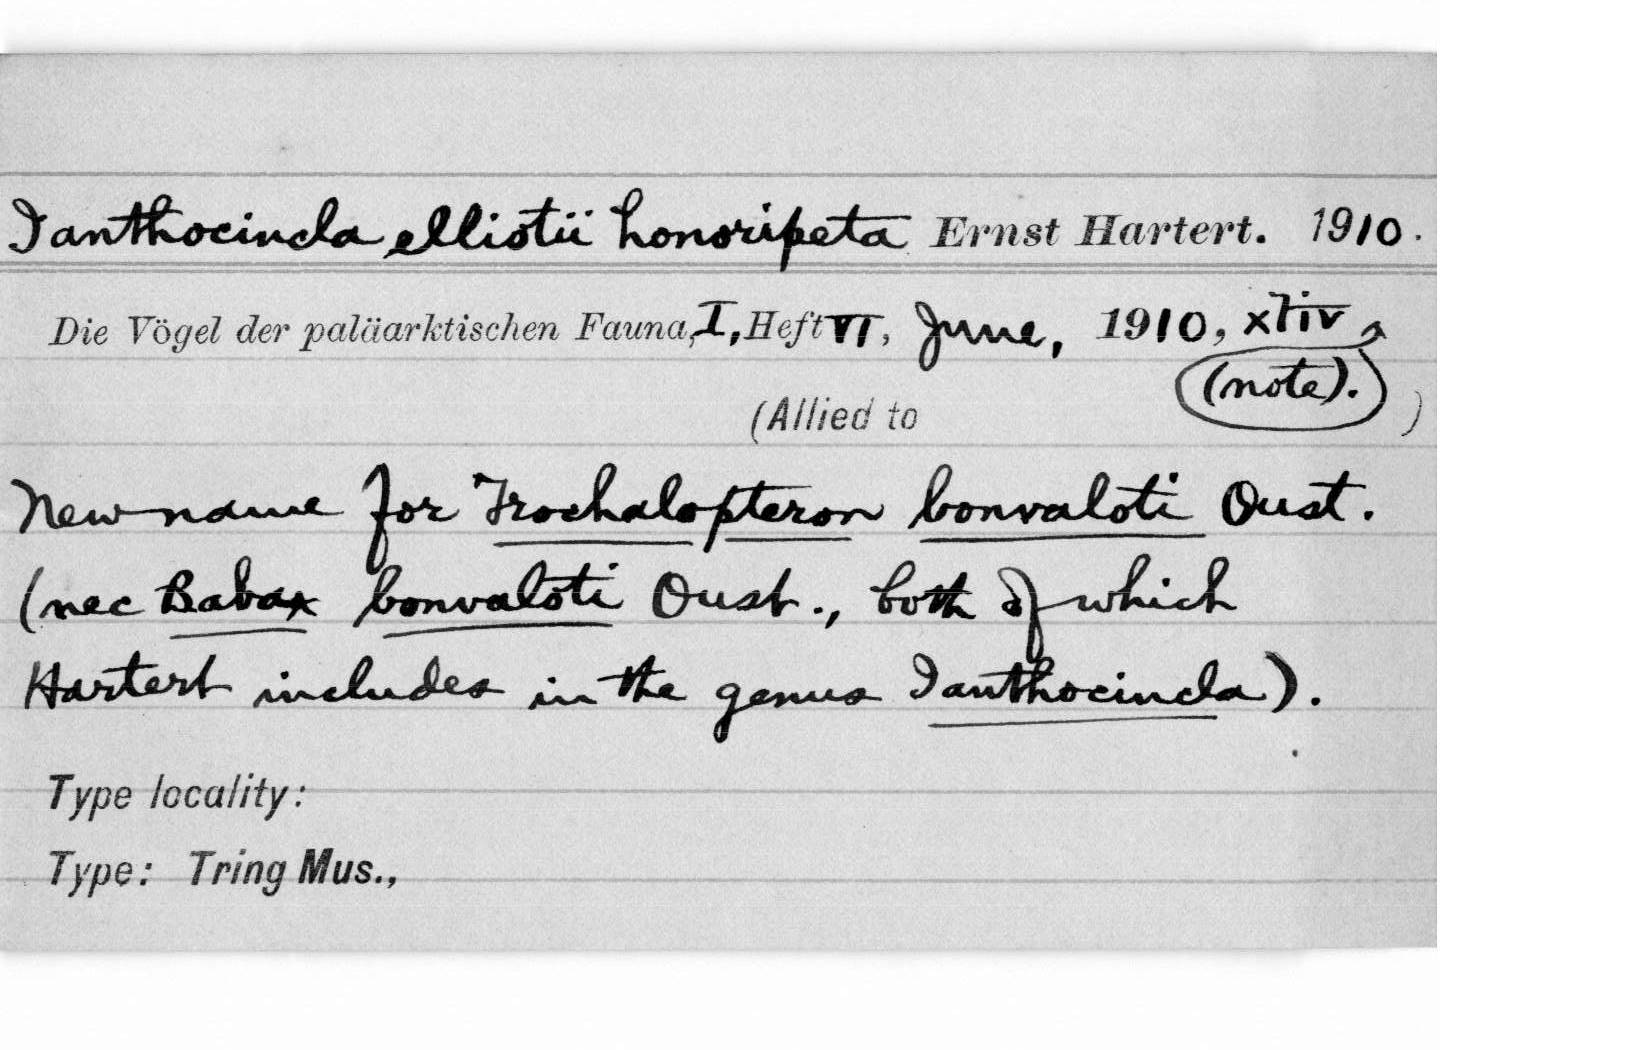 Ianthocincla elliotii honoripeta Ernst Hartert. 1910.
Die Vögel der paläarktischen Fauna, I, Heft VI, June, 1910, xliv
(note).
(Allied to )
New name for Trochalopteron bonvaloti Oust.
(nec Babax bonvaloti Oust., both of which
Hartert includes in the genus Ianthocincla).
Type locality:
Type: Tring Mus.,